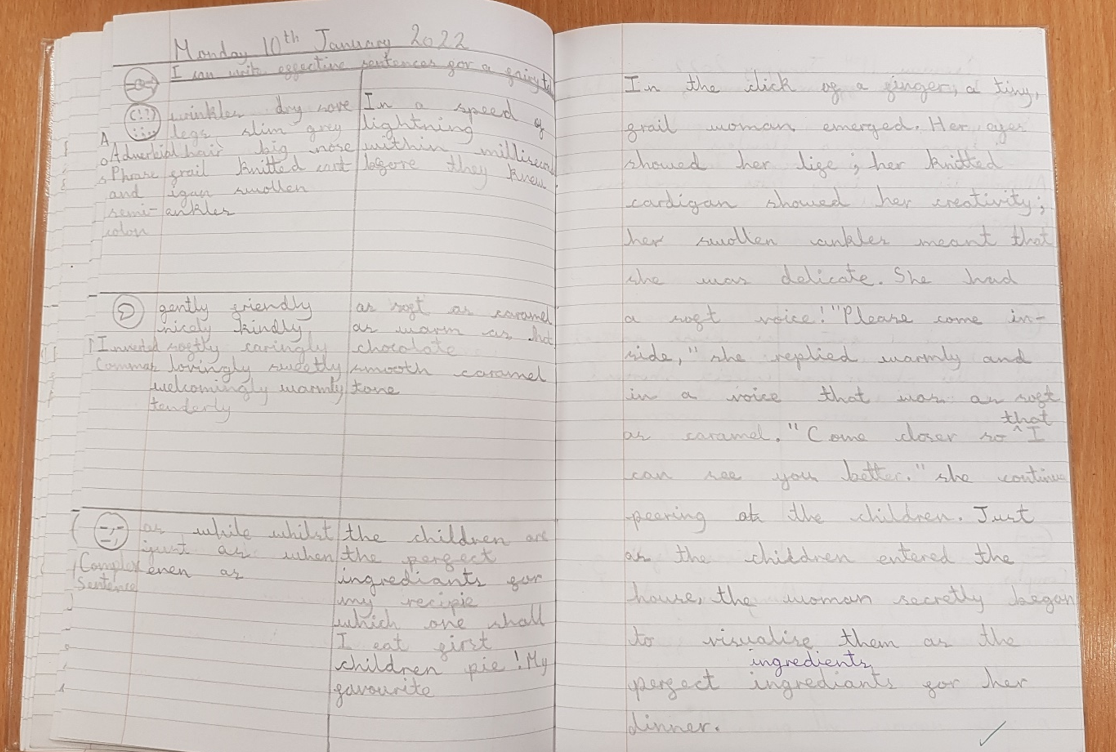 Monday 10th January 2022
I can write effective sentences for a fairytal
wrinkles dry sore
legs slim grey
Adverbial hair big nose
Phrase frail knitted card
and igan swollen
semi- ankles
colon
In a speed of
lightning
within millisecon
before they knew
gently friendly
nicely kindly
Inverted softly caringly
Commas lovingly sweetly
welcomingly warmly
tenderly
as soft as caramel
as warm as hot
chocolate
smooth caramel
tone
as while whilst
just as when
Complex even as
Sentence
the children are
the perfect
ingrediants for
my recipie
which one shall
I eat first
children pie! My
favourite
In the click of a finger, a tiny,
frail woman emerged. Her eyes
showed her life; her knitted
cardigan showed her creativity;
her swollen ankles meant that
she was delicate. She had
a soft voice! "Please come in-
side," she replied warmly and
in a voice that was as soft
as caramel. "Come closer so that I
can see you better." she continue
peering at the children. Just
as the children entered the
house, the woman secretly began
to visualise them as the
ingredients
perfect ingrediants for her
dinner.